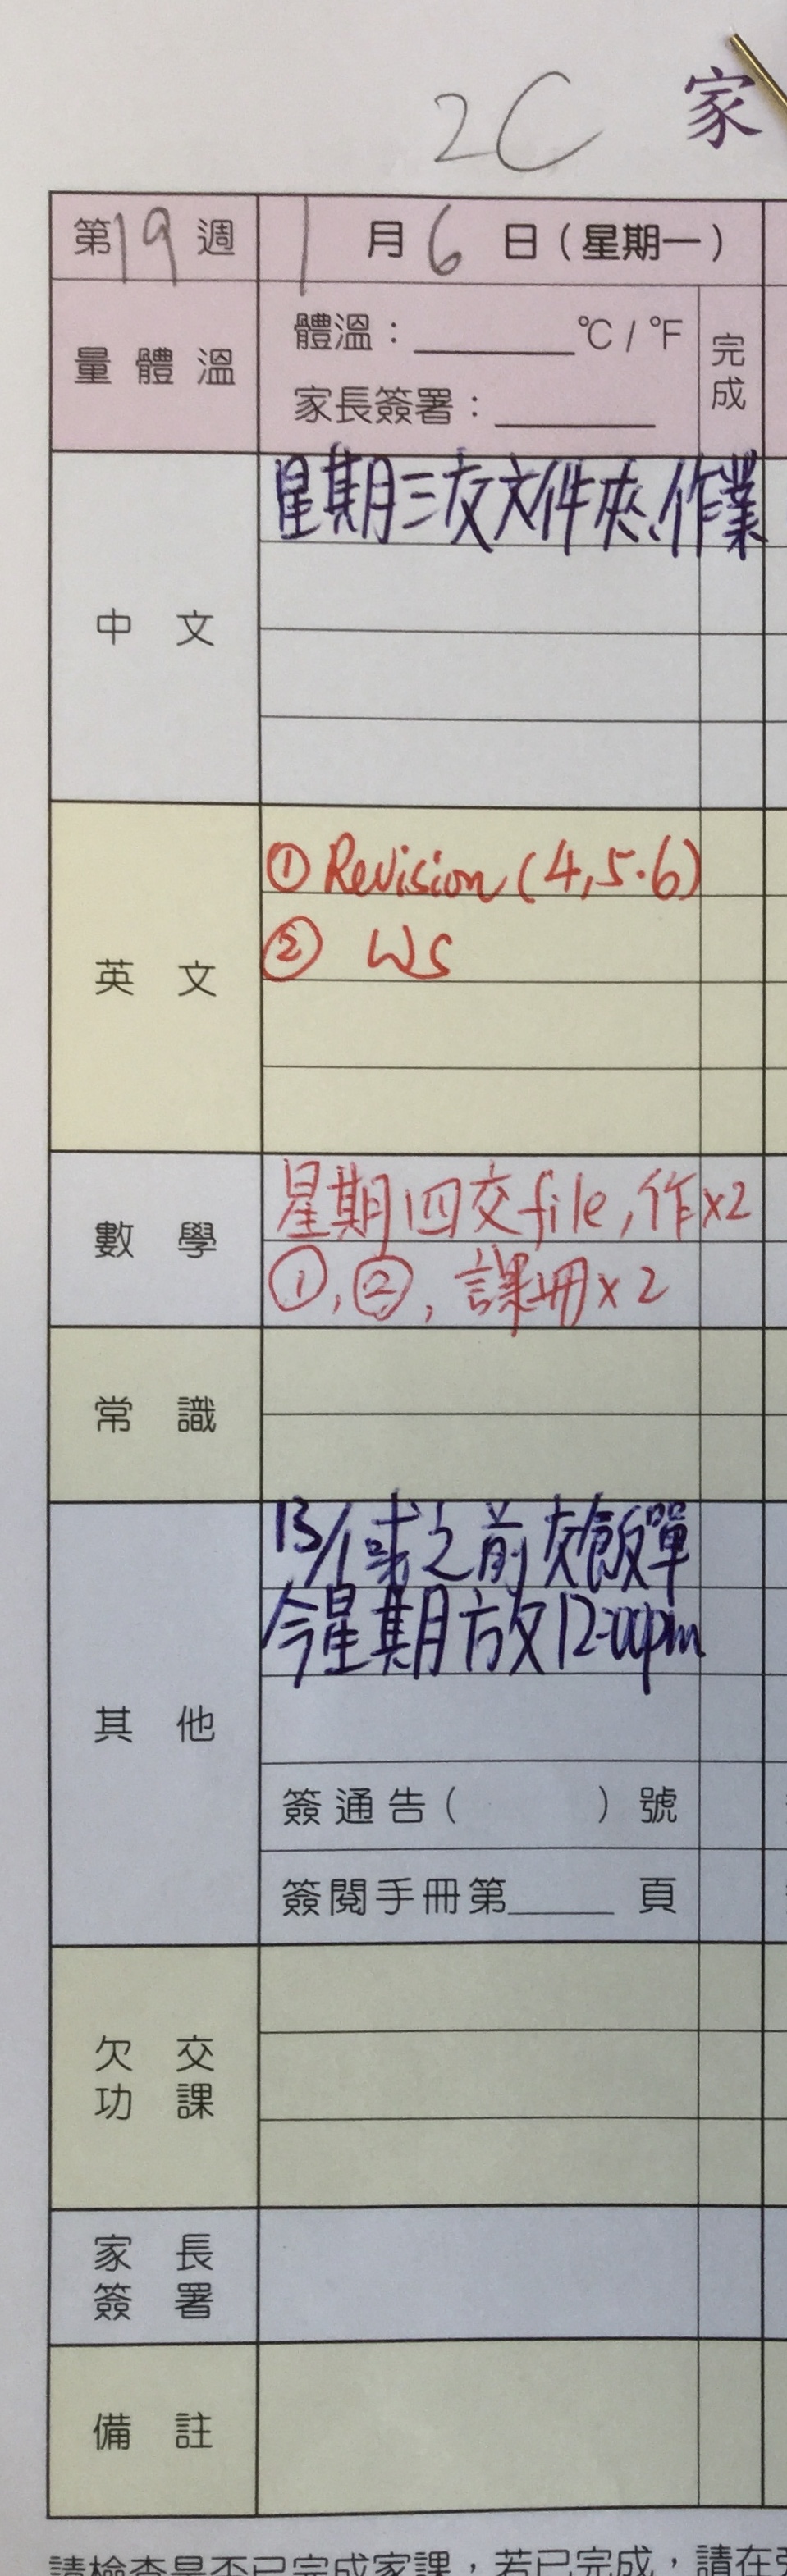 2C 家
第19週 1月6日(星期一)
量體溫
體溫：______°C / °F
家長簽署：______
完成
中文
星期三交文件夾、作業
英文
① Revision (4,5.6)
② WS
數學
星期四交file,作x2
①,②,課冊x2
常識
其他
13/1或之前交飯單
今星期放12:00pm
簽通告( )號
簽閱手冊第____頁
欠交功課
家長簽署
備註
請檢查是否已完成家課，若已完成，請在